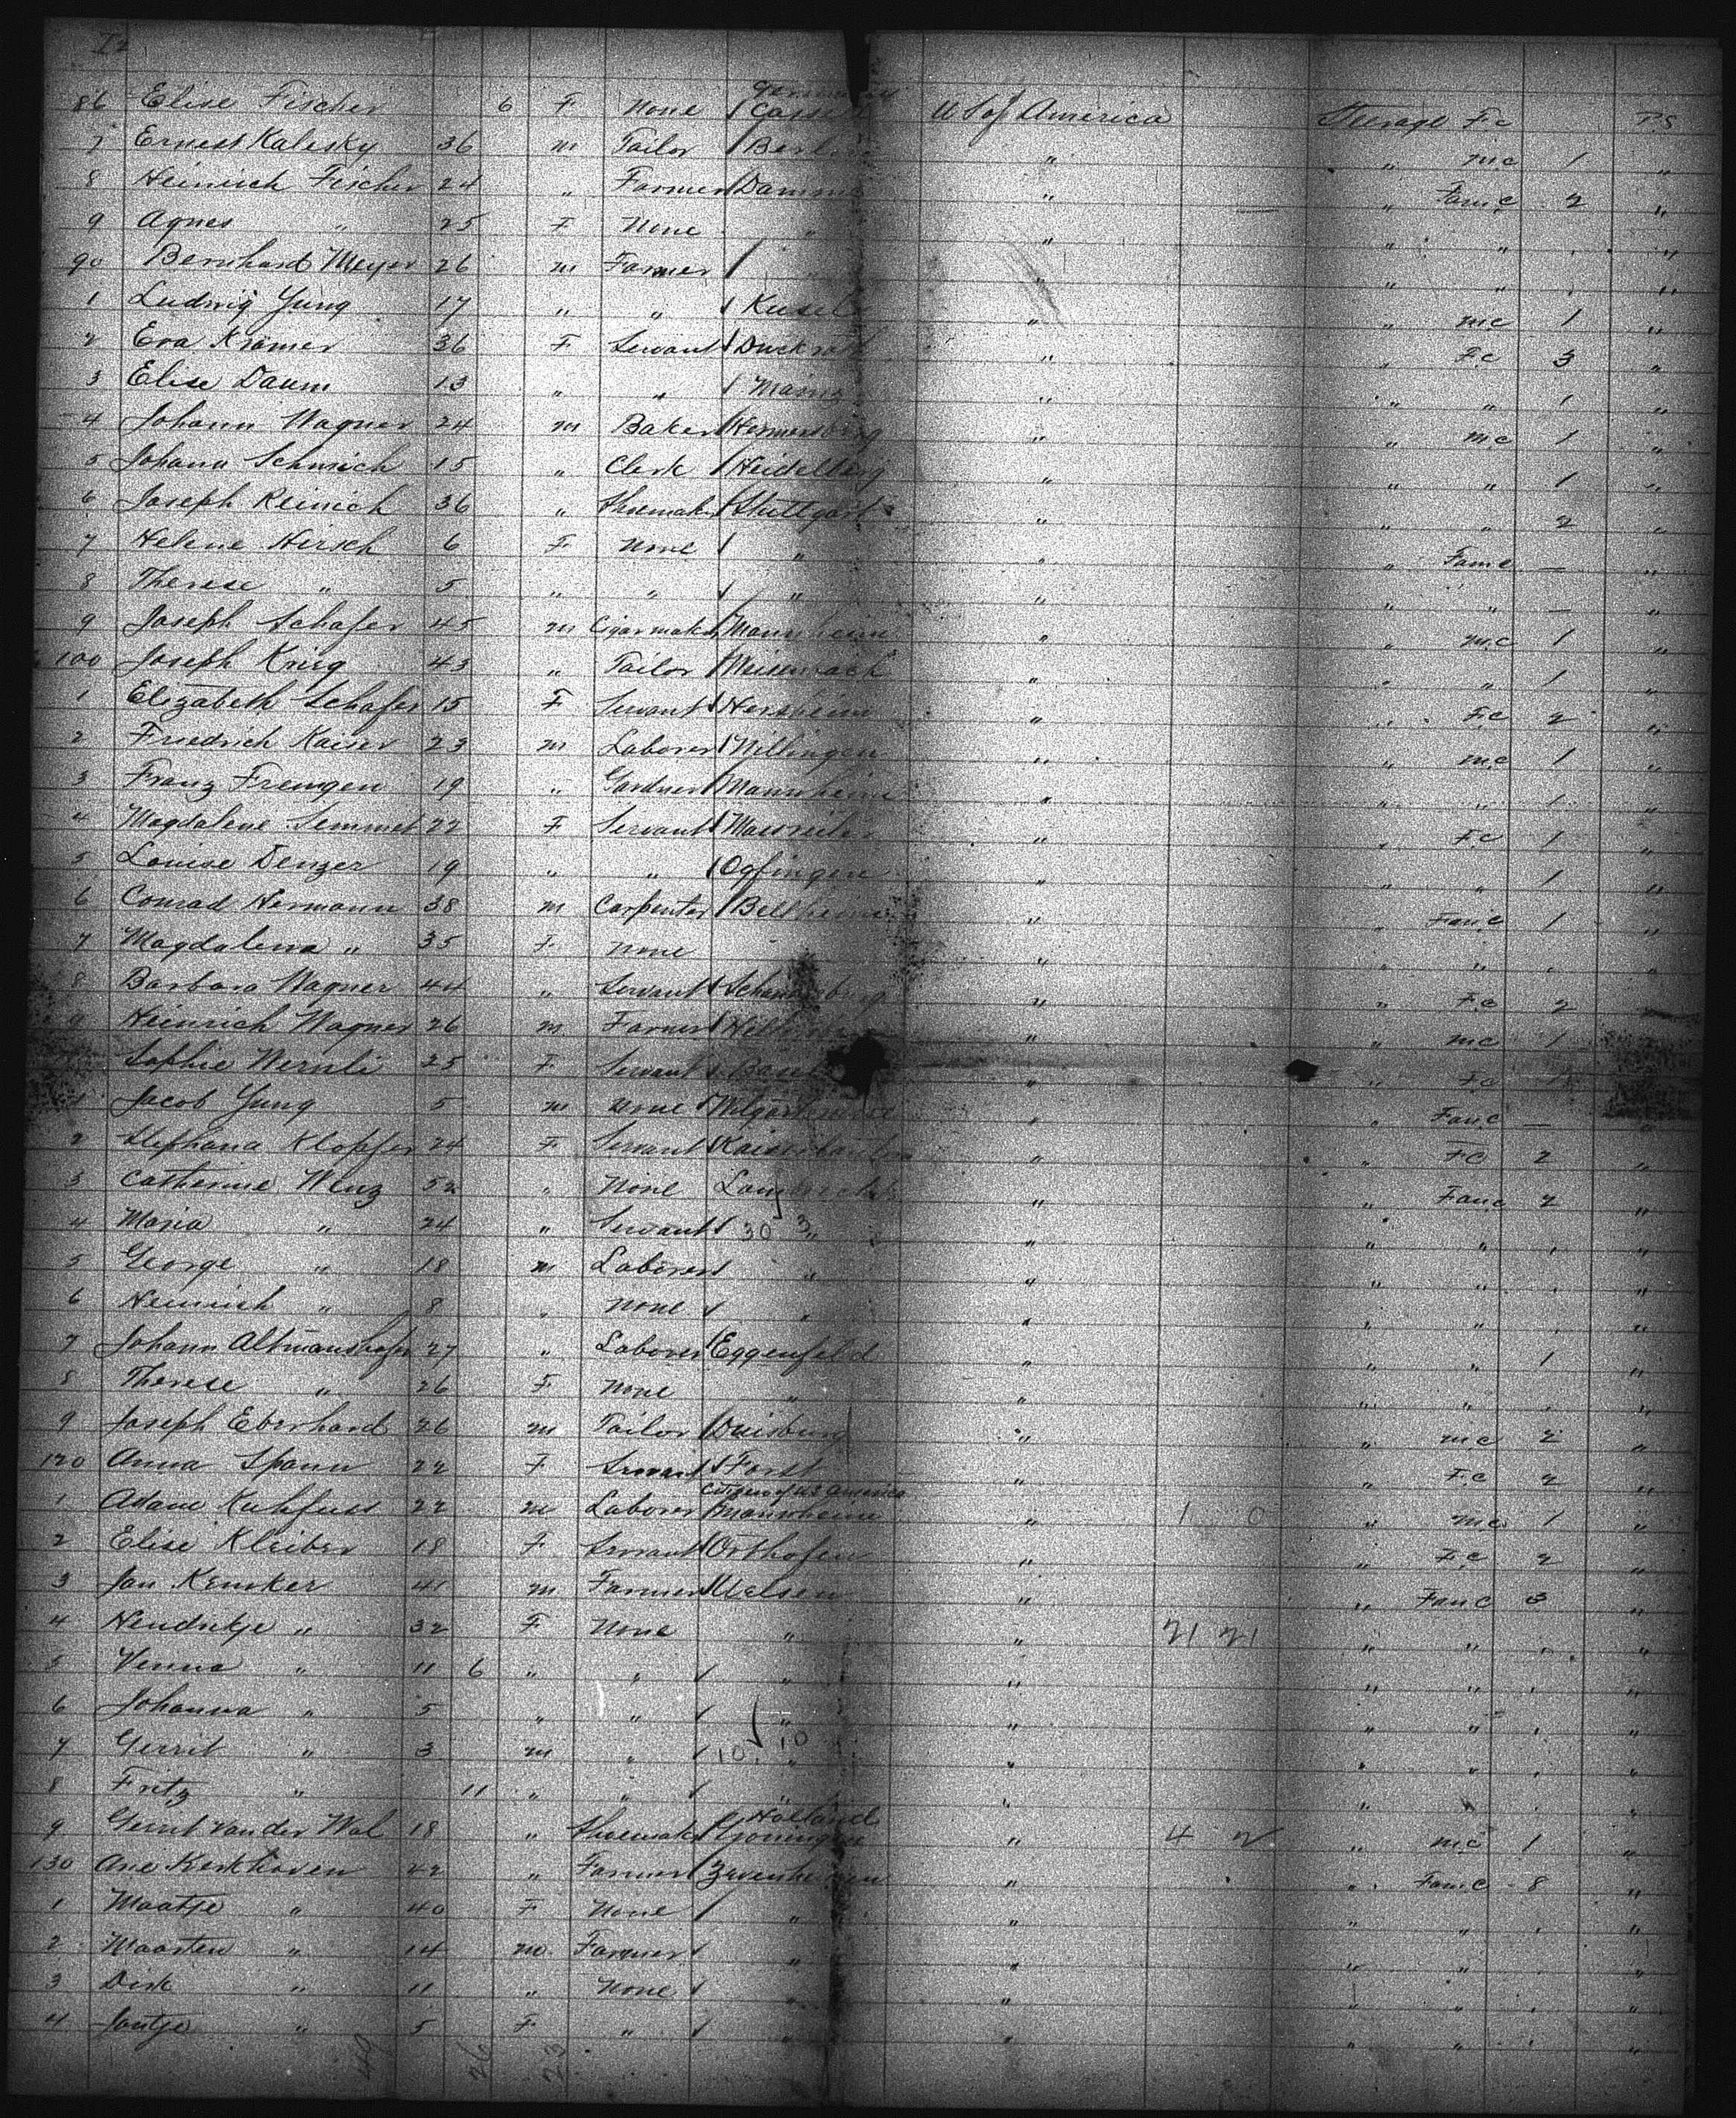 86 Elise Fischer 6 F None Germany Cassel U S of America Steerage F.c P.S
7 Ernest Kalesky 36 m Tailor Berlin " " m.c 1 "
8 Heinrich Fischer 24 " Farmer Damme " " Fam.c 2 "
9 Agnes " 25 F None " " " " "
90 Bernhard Meyer 26 m Farmer " " " " "
1 Ludwig Jung 17 " " Kusel " " m.c 1 "
2 Eva Kramer 36 F Servant " " F.c 3 "
3 Elise Daum 13 " " Mainz " " " 1 "
4 Johann Wagner 24 m Baker " " m.c 1 "
5 Johann Schmich 15 " Clerk Heidelberg " " " 1 "
6 Joseph Reinich 36 " Shoemaker Stuttgart " " " 2 "
7 Helene Hirsch 6 F None " " " Fam.c — "
8 Therese " 5 " " " " " " — "
9 Joseph Schafer 45 m Cigarmaker Mannheim " " m.c 1 "
100 Joseph Krieg 43 " Tailor " " " 1 "
1 Elizabeth Schafer 15 F Servant " " F.c 2 "
2 Friedrich Kaiser 23 m Laborer Villingen " " m.c 1 "
3 Franz Fremgen 19 " Gardner Mannheim " " " 1 "
4 Magdalene Semmet 22 F Servant " " F.c 1 "
5 Louise Denzer 19 " " Ogfingen " " " 1 "
6 Conrad Hermann 38 m Carpenter Bellheim " " Fam.c 1 "
7 Magdalena " 35 F None " " " " "
8 Barbara Wagner 44 " Servant " " F.c 2 "
9 Heinrich Wagner 26 m Farmer " " m.c 1
Sophie Wernli 25 F Servant Basel " " F.c 1
1 Jacob Jung 5 m None " " Fam.c — "
2 Stephana Klopfer 24 F Servant Kaiserslautern " " F.c 2 "
3 Catherine Wenz 52 " None " " Fam.c 2 "
4 Maria " 24 " Servant 30 3 " " " " " "
5 George " 18 m Laborer " " " " " "
6 Heinrich " 8 " None " " " " " "
7 Johann Altmanshofer 27 " Laborer Eggenfeld " " " 1 "
8 Therese " 26 F None " " " " " "
9 Joseph Eberhard 26 m Tailor Duisburg " " m.c 2 "
120 Anna Spann 22 F Servant Forst " " F.c 2 "
Citizen of U.S America
1 Adam Kuhfuss 22 m Laborer Mannheim " 1 0 " m.c 1 "
2 Elise Kleiber 18 F Servant Orthofen " " F.c 2 "
3 Jan Kemker 41 m Farmer Uelsen " " Fam.c 3 "
4 Hendrikje " 32 F None " " 21 21 " " " "
5 Venna " 11 6 " " " " " " " "
6 Johanna " 5 " " " " " " " "
7 Gerrit " 3 m " 10 10 " " " " " "
8 Fritz " 11 " " " " " " " "
Holland
9 Gerrit van der Wal 18 " Shoemaker Groningen " 4 2 " m.c 1 "
130 Arie Kerkhoven 42 " Farmer Zevenhuizen " " Fam.c 8 "
1 Maatje " 40 F None " " " " " "
2 Maarten " 14 m Farmer " " " " " "
3 Dirk " 11 " None " " " " " "
4 Jantje " 5 F " " " " " " "
49 26 23